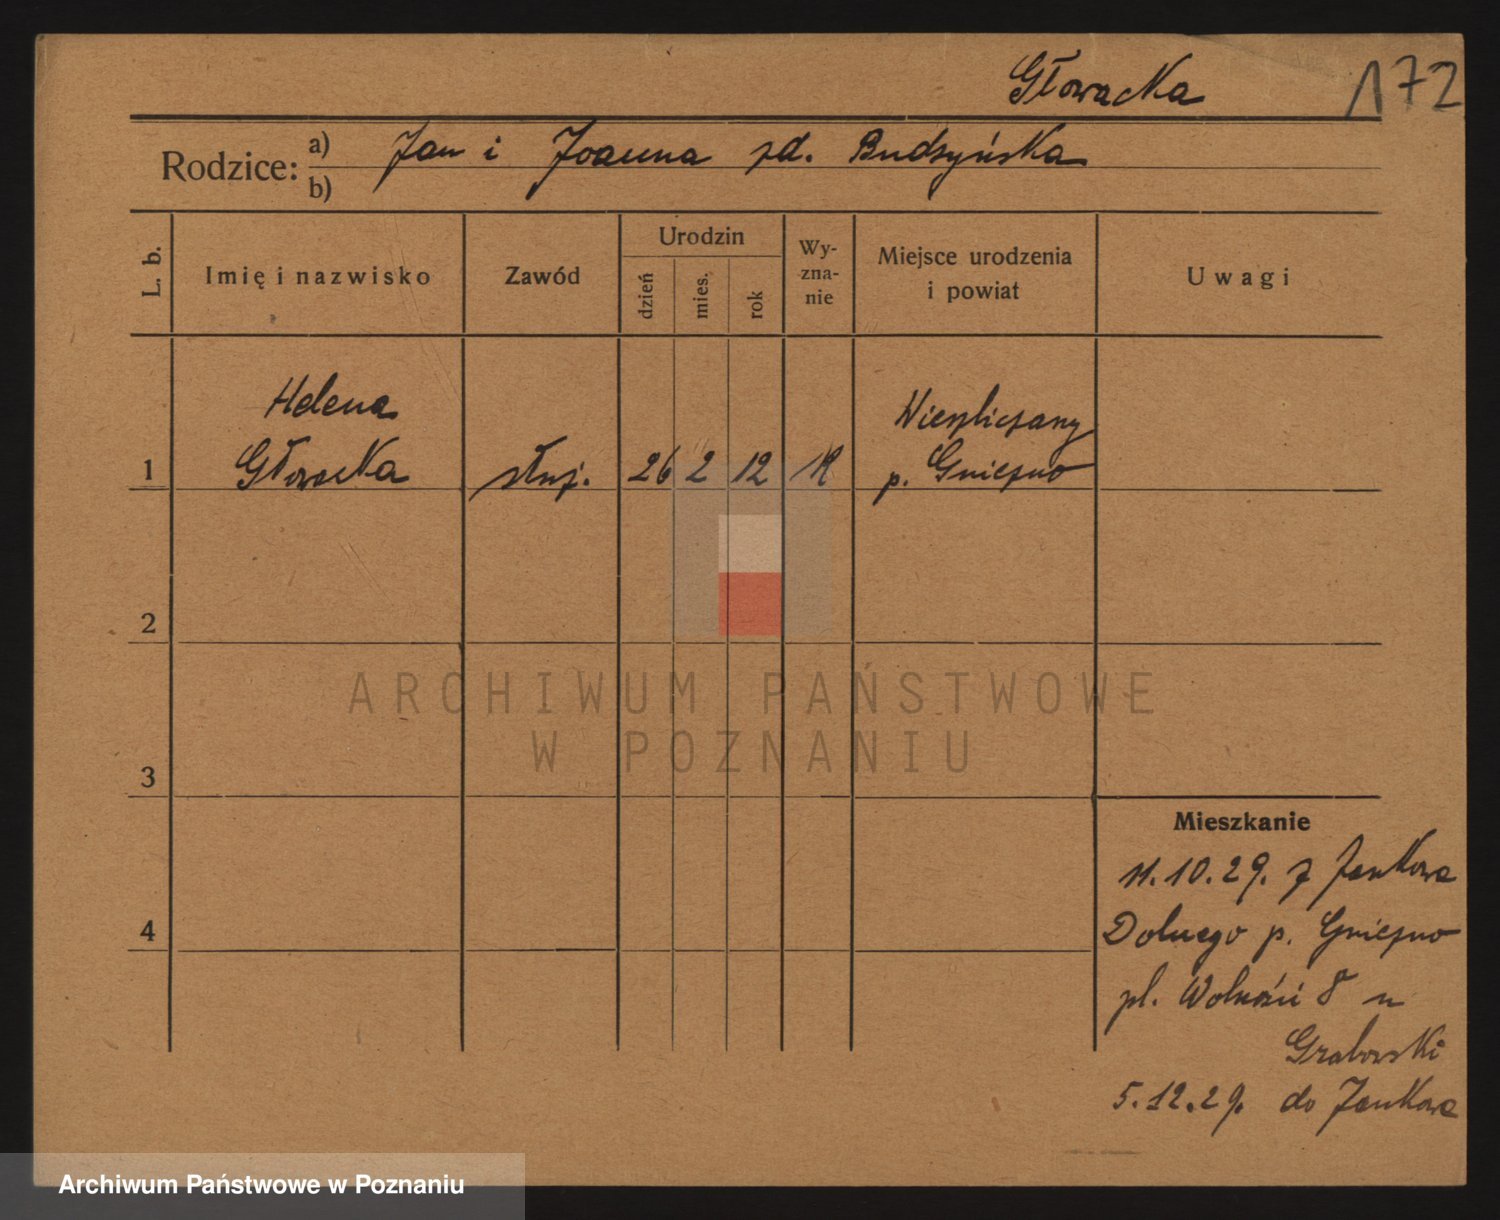 Głowacka 172
Rodzice: a) Jan i Joanna zd. Budzyńska
b)
L. b. Imię i nazwisko Zawód Urodzin dzień mies. rok Wy-zna-nie Miejsce urodzenia i powiat Uwagi
Helena
Wierzbiczany
1 Głowacka służ. 26 2 12 rk p. Gniezno
2
ARCHIWUM PAŃSTWOWE
W POZNANIU
3
Mieszkanie
11.10.29. z Jankowa
4 Dolnego p. Gniezno
pl. Wolności 8 u
Grabowski
5.12.29. do Jankowa
Archiwum Państwowe w Poznaniu